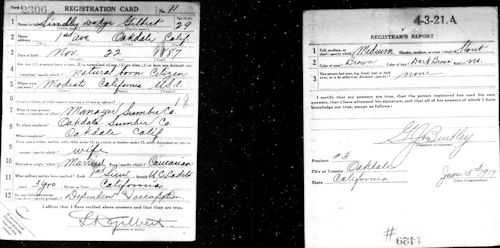 Form 1 2306 REGISTRATION CARD No. 11
1 Name in full Lindley Dodge Gilbert Age, in yrs. 29
2 Home address 1st Ave Oakdale Calif
3 Date of birth Nov. 22 1887
4 Are you (1) a natural-born citizen, (2) a naturalized citizen, (3) an alien, (4) or have you declared your intention (specify which)? natural born Citizen
5 Where were you born? Modesto California USA
6 If not a citizen, of what country are you a citizen or subject?
7 What is your present trade, occupation, or office? Manager Lumber Co.
8 By whom employed? Oakdale Lumber Co.
Where employed? Oakdale Calif
9 Have you a father, mother, wife, child under 12, or a sister or brother under 12, solely dependent on you for support (specify which)? wife
10 Married or single (which)? Married Race (specify which)? Caucasian
11 What military service have you had? Rank 1st Lieut
3 yrs Nation or State California
12 Do you claim exemption from draft (specify grounds)? Dependent Occupation
I affirm that I have verified above answers and that they are true.
L D Gilbert
4-3-21.A
REGISTRAR'S REPORT
1 Tall, medium, or short (specify which)? Medium Slender, medium, or stout (which)? Stout
2 Color of eyes? Brown Color of hair? Dark Brown Bald? no.
3 Has person lost arm, leg, hand, foot, or both eyes, or is he otherwise disabled (specify)? none
I certify that my answers are true, that the person registered has read his own answers, that I have witnessed his signature, and that all of his answers of which I have knowledge are true, except as follows:
Precinct #3
City or County Oakdale
State California June 5th 1917
(Date of registration)